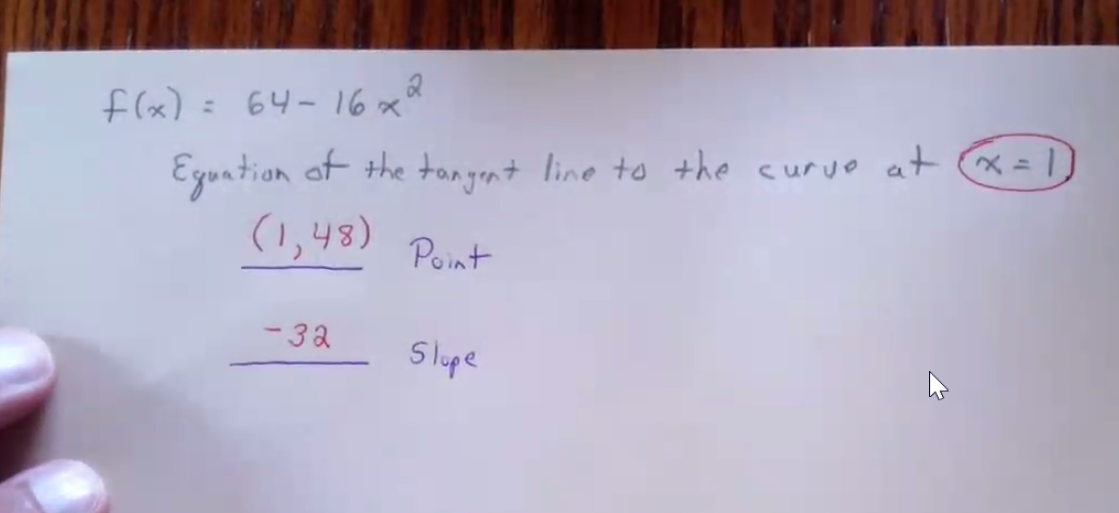 f(x) = 64 - 16x²
Equation of the tangent line to the curve at x = 1.
(1, 48) Point
-32 Slope